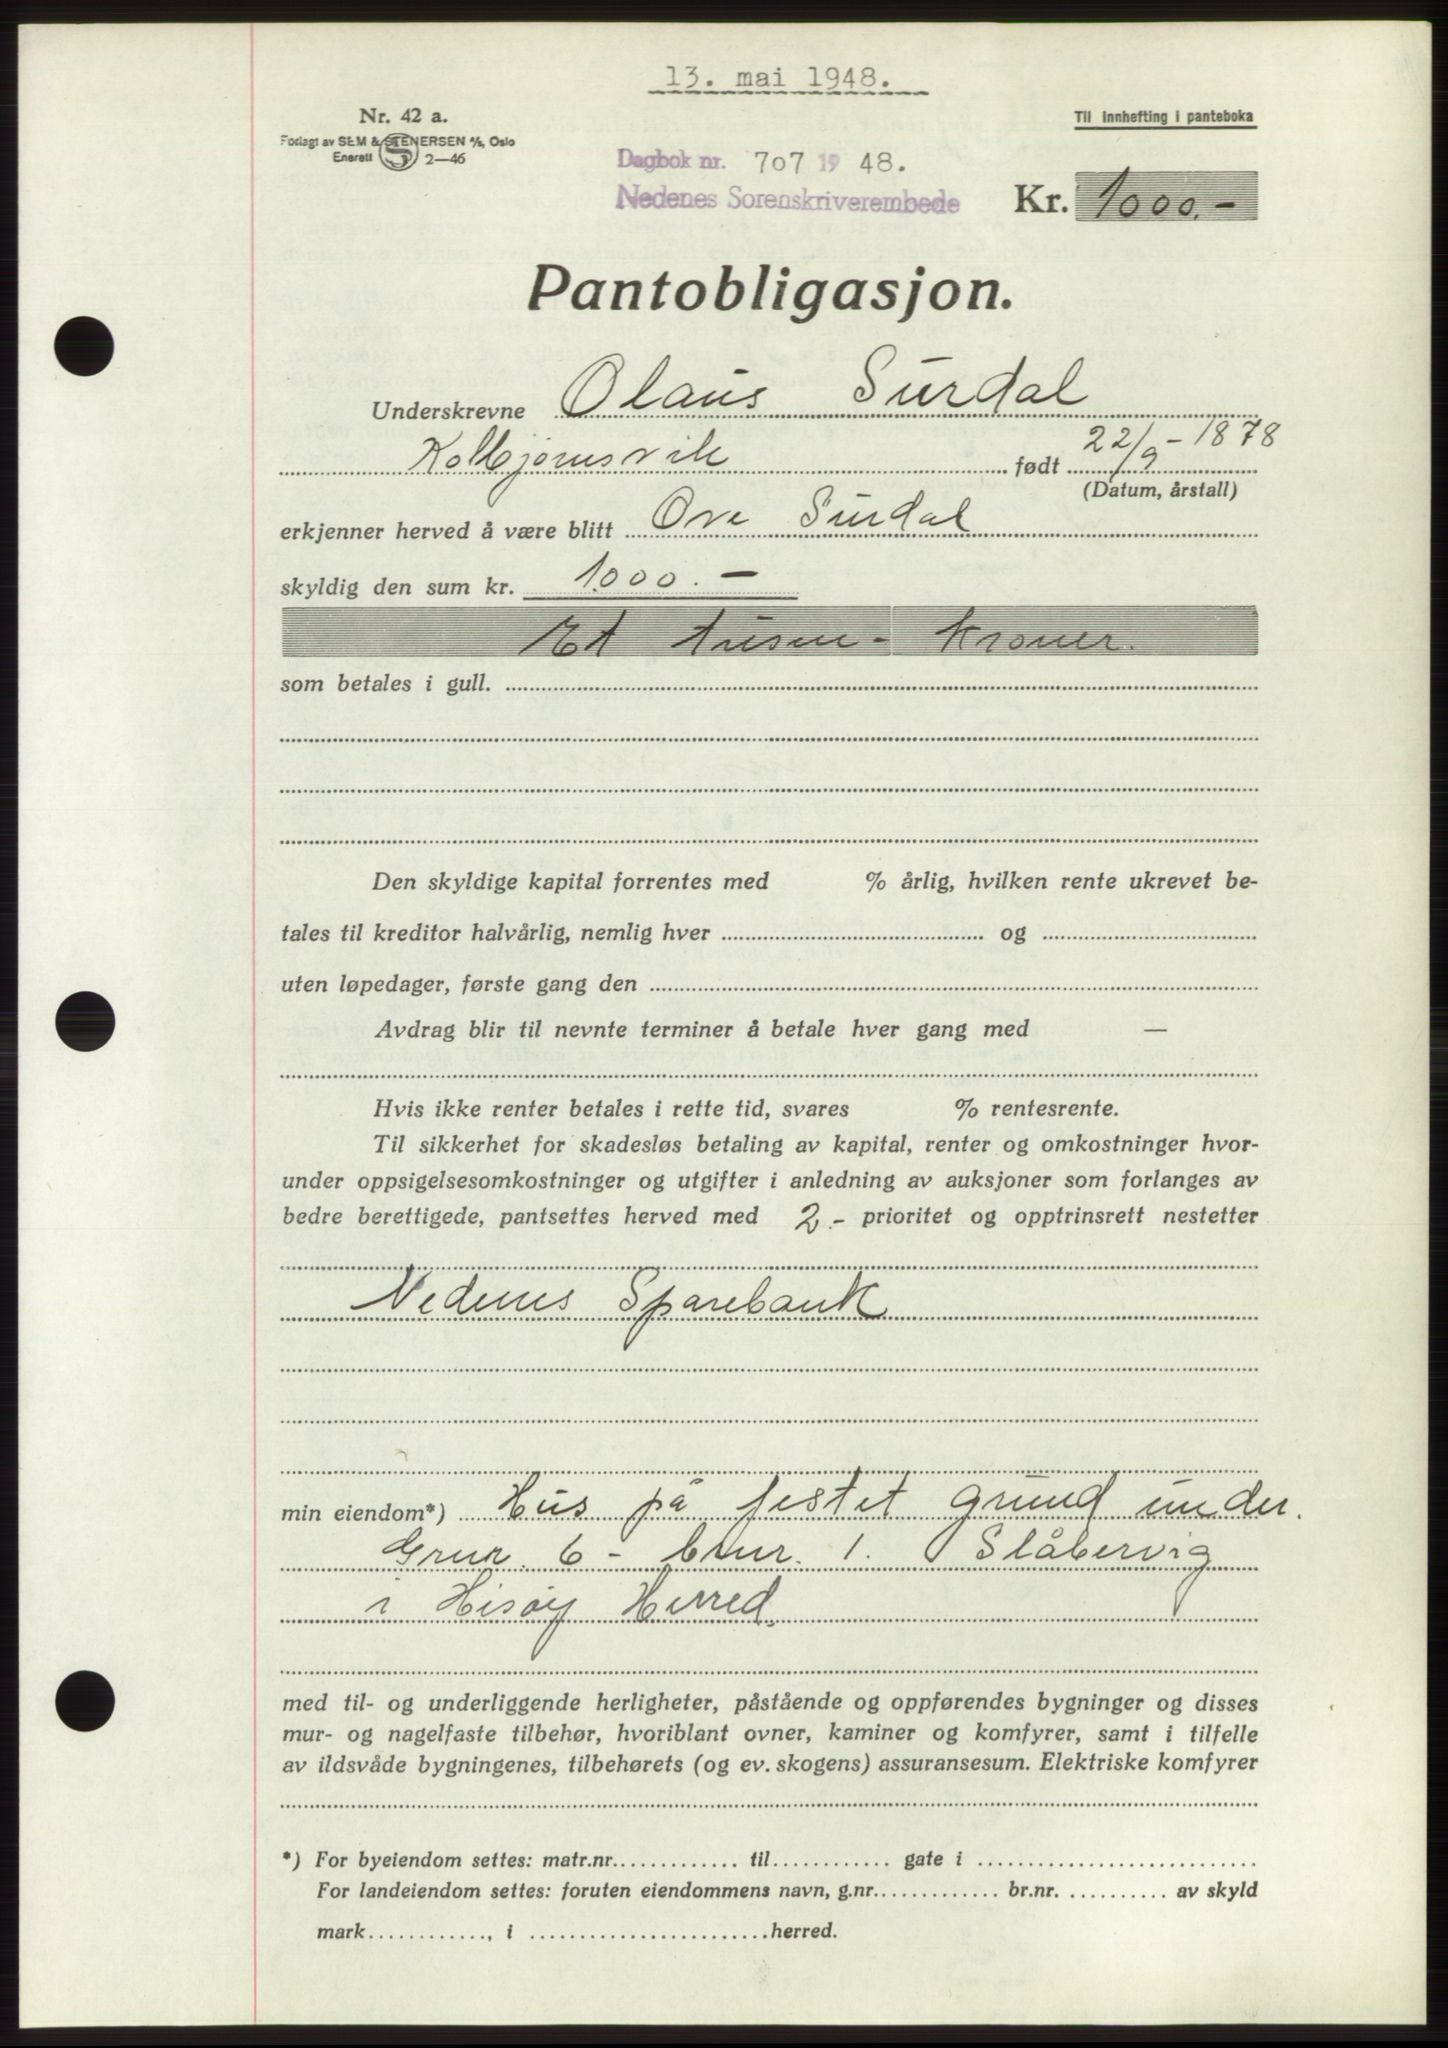 13. mai 1948.
Nr. 42 a.
Forlagt av SEM & STENERSEN A/S, Oslo
Enerett 2—46
Til innhefting i panteboka
Dagbok nr. 707 19 48.
Nedenes Sorenskriverembede
Kr. 1000.-
Pantobligasjon.
Underskrevne Olaus Surdal
Kolbjørnsvik født 22/9-1878
(Datum, årstall)
erkjenner herved å være blitt Ove Surdal
skyldig den sum kr. 1000.-
Et tusen- Kroner.
som betales i gull.
Den skyldige kapital forrentes med % årlig, hvilken rente ukrevet be-
tales til kreditor halvårlig, nemlig hver og
uten løpedager, første gang den
Avdrag blir til nevnte terminer å betale hver gang med —
Hvis ikke renter betales i rette tid, svares % rentesrente.
Til sikkerhet for skadesløs betaling av kapital, renter og omkostninger hvor-
under oppsigelsesomkostninger og utgifter i anledning av auksjoner som forlanges av
bedre berettigede, pantsettes herved med 2.- prioritet og opptrinsrett nestetter
Nedenes Sparebank
min eiendom*) Hus på festet grund under.
Grnr. 6 - bnr. 1. Slåbervig
i Hisøy Herred.
med til- og underliggende herligheter, påstående og oppførendes bygninger og disses
mur- og nagelfaste tilbehør, hvoriblant ovner, kaminer og komfyrer, samt i tilfelle
av ildsvåde bygningenes, tilbehørets (og ev. skogens) assuransesum. Elektriske komfyrer
*) For byeiendom settes: matr.nr. til gate i
For landeiendom settes: foruten eiendommens navn, g.nr. br.nr. av skyld
mark , i herred.